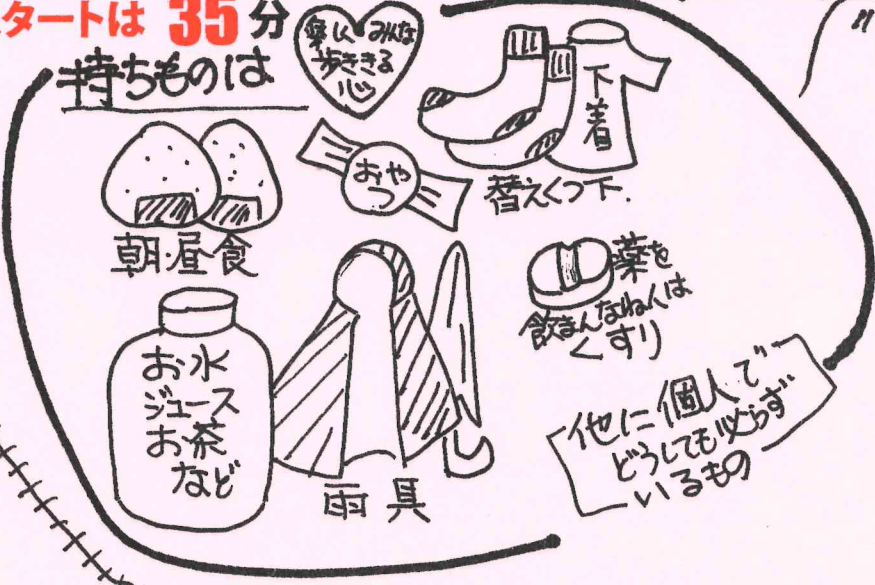 タートは 35分
持ちものは
楽しくみんな
歩ききる
心
下着
おやつ
替えくつ下.
朝・昼食
薬を
飲まんなねんは
くすり
お水
ジュース
お茶
など
雨具
他に個人で
どうしても必らず
いるもの